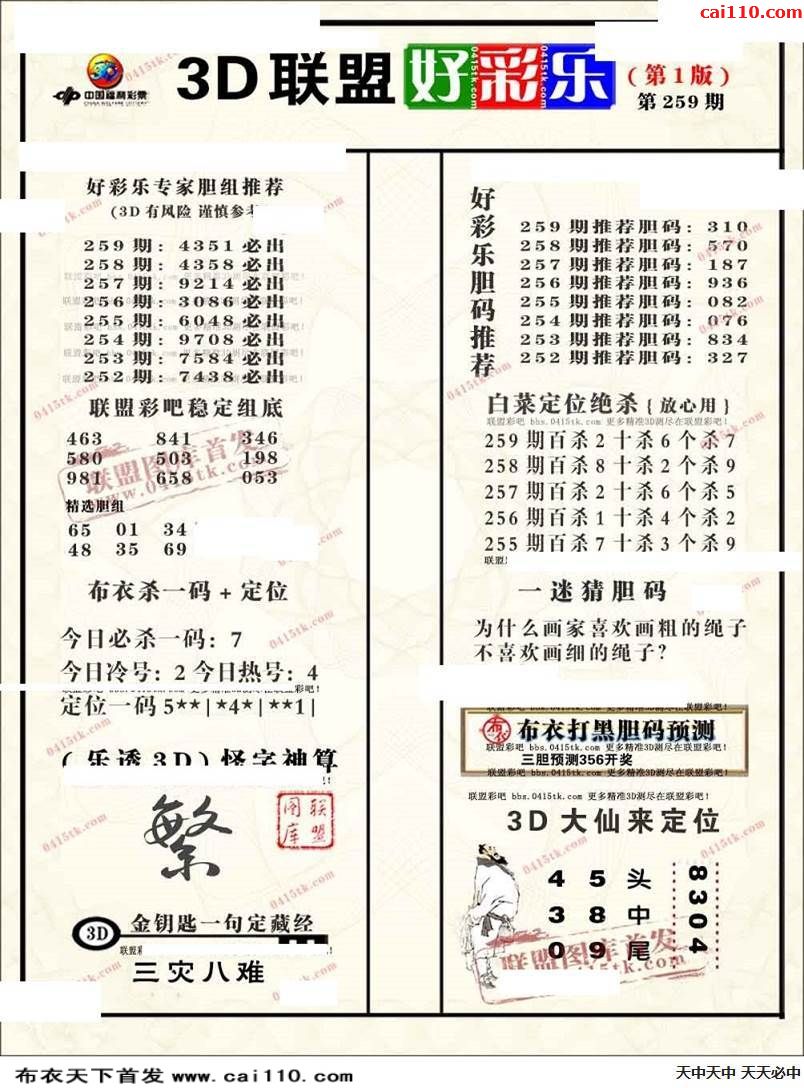 cai110.com
中国福利彩票
CHINA WELFARE LOTTERY
3D联盟好彩乐
(第1版)
第259期
好彩乐专家胆组推荐
(3D有风险 谨慎参考
259期: 4351必出
258期: 4358必出
257期: 9214必出
256期: 3086必出
255期: 6048必出
254期: 9708必出
253期: 7584必出
252期: 7438必出
联盟彩吧稳定组底
463 841 346
580 503 198
981 658 053
联盟图库首发
www.0415tk.com
精选胆组
65 01 34
48 35 69
布衣杀一码+定位
今日必杀一码: 7
今日冷号: 2 今日热号: 4
联盟彩吧 bbs.0415tk.com 更多精准3D测尽在联盟彩吧!
定位一码5**|*4*|**1|
(乐透3D)怪字神算
繁
联盟图库
3D 金钥匙一句定藏经
三灾八难
好彩乐胆码推荐
259期推荐胆码: 310
258期推荐胆码: 570
257期推荐胆码: 187
256期推荐胆码: 936
255期推荐胆码: 082
254期推荐胆码: 076
253期推荐胆码: 834
252期推荐胆码: 327
白菜定位绝杀{放心用}
联盟彩吧 bbs.0415tk.com 更多精准3D测尽在联盟彩吧!
259期百杀2十杀6个杀7
258期百杀8十杀2个杀9
257期百杀2十杀6个杀5
256期百杀1十杀4个杀2
255期百杀7十杀3个杀9
一迷猜胆码
为什么画家喜欢画粗的绳子
不喜欢画细的绳子?
联盟彩吧 bbs.0415tk.com 更多精准3D测尽在联盟彩吧!
布 布衣打黑胆码预测
联盟彩吧 bbs.0415tk.com 更多精准3D测尽在联盟彩吧!
三胆预测356开奖
联盟彩吧 bbs.0415tk.com 更多精准3D测尽在联盟彩吧!
联盟彩吧 bbs.0415tk.com 更多精准3D测尽在联盟彩吧!
3D大仙来定位
4 5 头
3 8 中
0 9 尾
8304
联盟图库首发
布衣天下首发 www.cai110.com
天中天中 天天必中